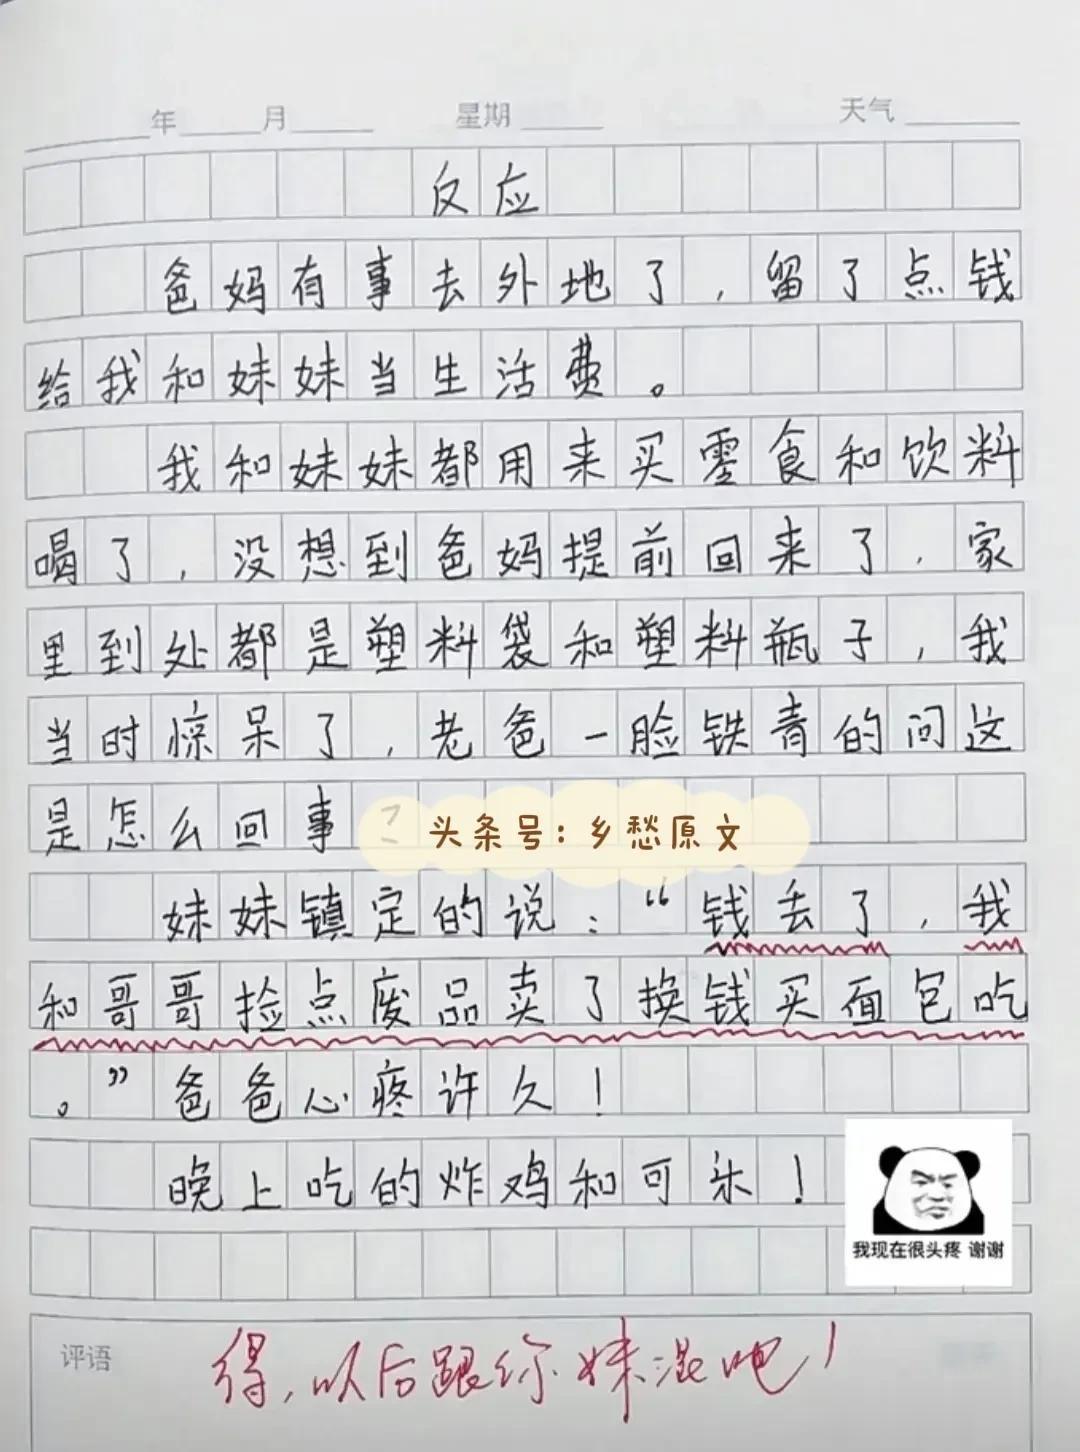 年 月 星期 天气
反应
爸妈有事去外地了，留了点钱
给我和妹妹当生活费。
我和妹妹都用来买零食和饮料
喝了，没想到爸妈提前回来了，家
里到处都是塑料袋和塑料瓶子，我
当时惊呆了，老爸一脸铁青的问这
是怎么回事？
头条号：乡愁原文
妹妹镇定的说：“钱丢了，我
和哥哥捡点废品卖了换钱买面包吃
。”爸爸心疼许久！
晚上吃的炸鸡和可乐！
我现在很头疼 谢谢
评语
得，以后跟你妹混吧！